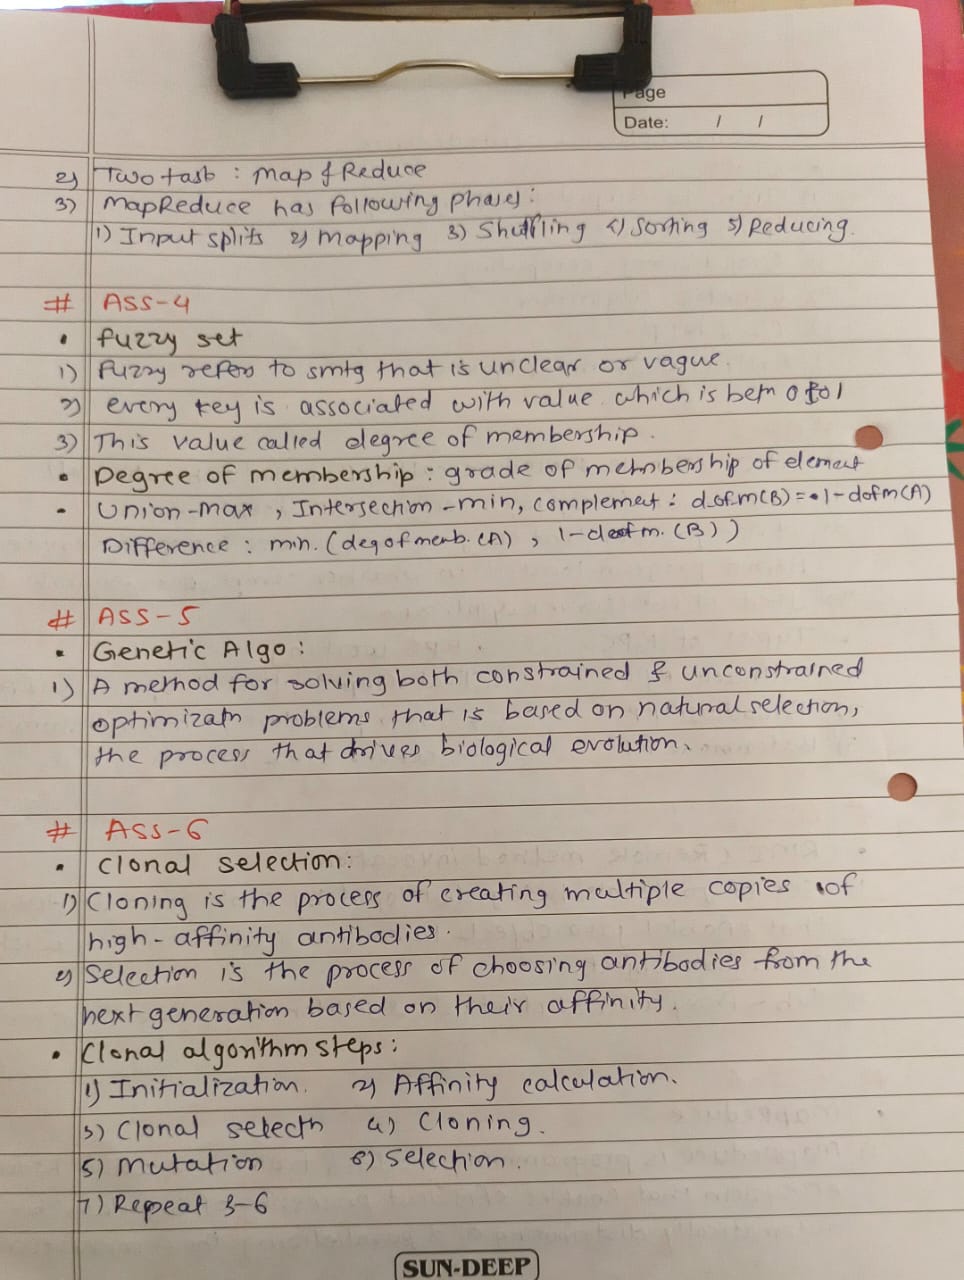 Page
Date: / /
2) Two task : Map & Reduce
3) MapReduce has following phases :
1) Input splits 2) Mapping 3) Shuffling 4) Sorting 5) Reducing.
# ASS-4
• fuzzy set
1) Fuzzy refers to smtg that is unclear or vague.
2) every key is associated with value which is betn 0 to 1
3) This value called degree of membership.
• Degree of membership : grade of membership of element
• Union-max, Intersection-min, complemet : d.of.m(B) = 1-dofm(A)
Difference : min. (deg of memb. (A) , 1- m. (B))
# ASS-5
• Genetic Algo :
1) A method for solving both constrained & unconstrained
optimizatn problems that is based on natural selection,
the process that drives biological evolution.
# ASS-6
• Clonal selection:
1) Cloning is the process of creating multiple copies of
high-affinity antibodies.
2) Selection is the process of choosing antibodies from the
next generation based on their affinity.
• Clonal algorithm steps :
1) Initialization. 2) Affinity calculation.
3) Clonal selectn 4) Cloning.
5) Mutation 6) Selection.
7) Repeat 3-6
SUN-DEEP